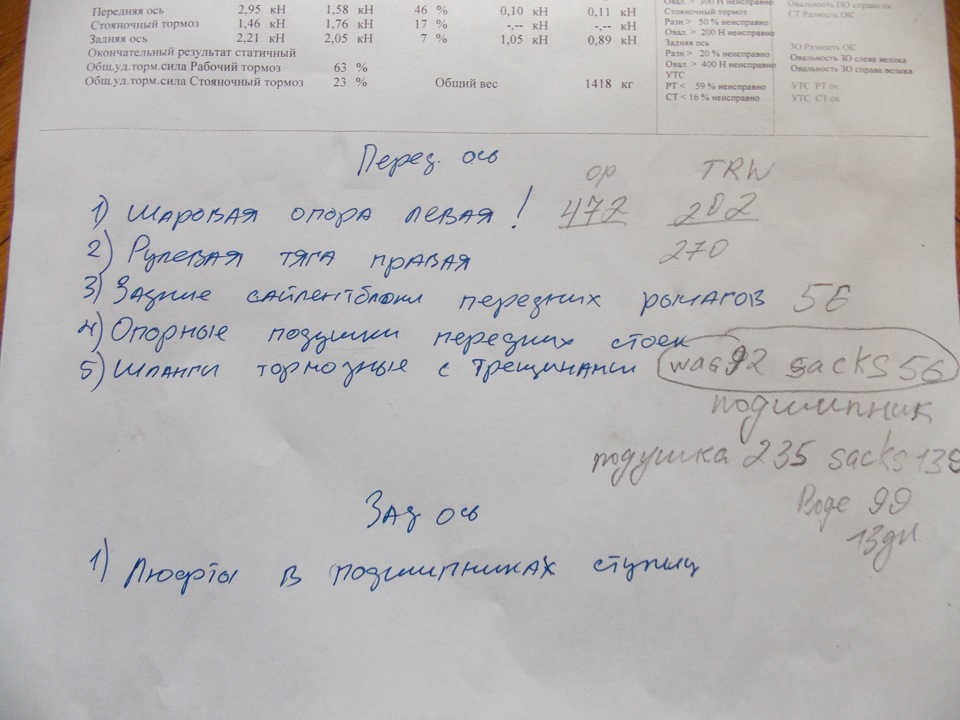 Овал > 300 Н неисправно Овальность ПО справа ок
Передняя ось 2,95 кН 1,58 кН 46 % 0,10 кН 0,11 кН Стояночный тормоз СТ Разность ОК
Стояночный тормоз 1,46 кН 1,76 кН 17 % -,-- кН -,-- кН Разн.> 50 % неисправно
Задняя ось 2,21 кН 2,05 кН 7 % 1,05 кН 0,89 кН Овал. > 200 Н неисправно
Окончательный результат статичный Задняя ось ЗО Разность ОК
Общ.уд.торм.сила Рабочий тормоз 63 % Разн.> 20 % неисправно Овальность ЗО слева велика
Общ.уд.торм.сила Стояночный тормоз 23 % Общий вес 1418 кг Овал. > 400 Н неисправно Овальность ЗО справа велика
УТС
РТ < 59 % неисправно УТС РТ ок
СТ < 16 % неисправно УТС СТ ок
Перед. ось
ор TRW
1) Шаровая опора левая! 472 202
2) Рулевая тяга правая 270
3) Задние сайлентблоки передних рычагов 56
4) Опорные подушки передних стоек
5) Шланги тормозные с трещинами wag92 sacks 56
подшипник
подушка 235 sacks 139
Воде 99
13дн.
Зад ось
1) Люфты в подшипниках ступиц